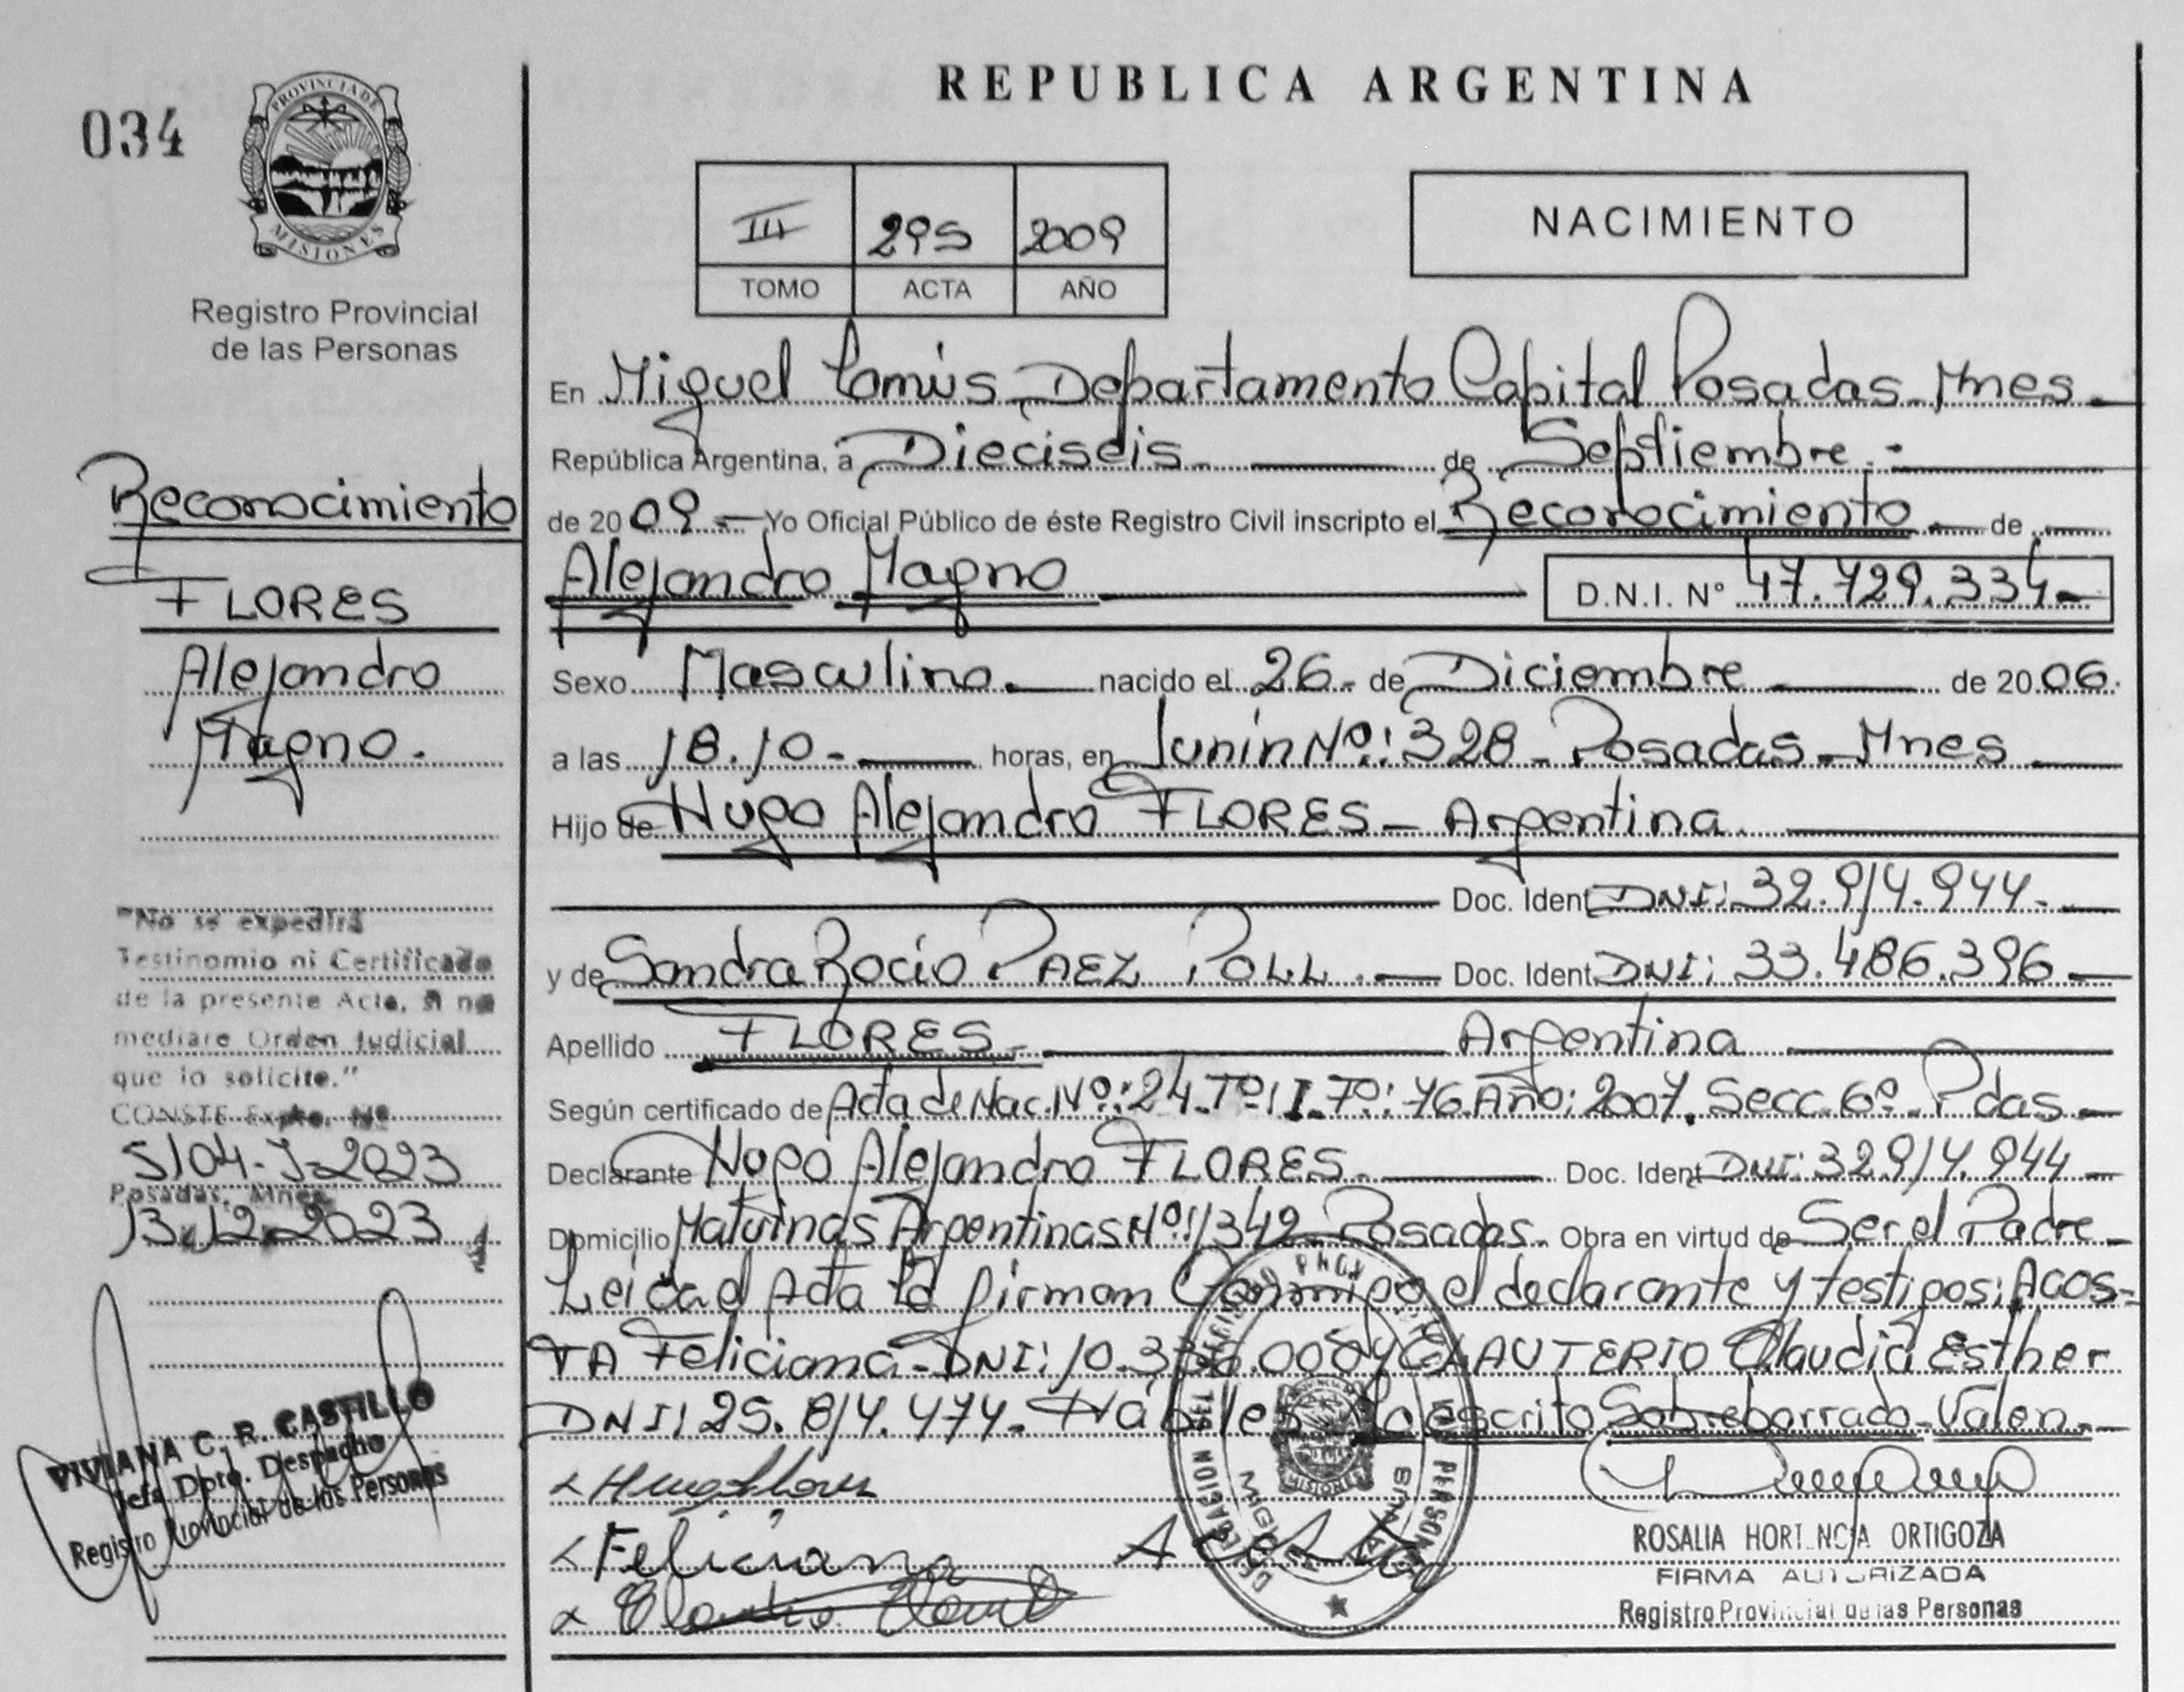 REPUBLICA ARGENTINA
034
PROVINCIA DE
MISIONES
Registro Provincial
de las Personas
III 295 2009
TOMO ACTA AÑO
NACIMIENTO
En Miguel Lanús - Departamento Capital Posadas - Mnes -
República Argentina, a Dieciseis - de Septiembre -
de 2009 - Yo Oficial Público de éste Registro Civil inscripto el Reconocimiento - de
Alejandro Magno D.N.I. Nº 47.729.334-
Sexo Masculino. nacido el 26 - de Diciembre de 2006.
a las 18.10 - horas, en Junín Nº: 328 - Posadas - Mnes
Hijo de Hugo Alejandro FLORES - Argentina
Doc. Ident DNI: 32.914.944 -
y de Sandra Rocío PAEZ POLL. - Doc. Ident DNI: 33.486.396 -
Apellido FLORES - Argentina
Según certificado de Acta de Nac. Nº: 24. Tº: I. Fº: 76 Año: 2007. Secc. 6º - Pdas -
Declarante Hugo Alejandro FLORES. Doc. Ident DNI: 32.914.944 -
Domicilio Malvinas Argentinas Nº: 1342 - Posadas. Obra en virtud de Ser el Padre -
Leida el Acta la firman Conmigo el declarante y testigos: ACOS-
TA Feliciana - DNI: 10. y ELAUTERIO Claudia Esther
DNI: 25.814.474 - Hábiles - Lo escrito Sobreborrado - Valen. -
Hugo Flores
Feliciana Acosta
ROSALIA HORTENCIA ORTIGOZA
FIRMA AUTORIZADA
Registro Provincial de las Personas
Reconocimiento
FLORES
Alejandro
Magno.
"No se expedirá
Testinomio ni Certificado
de la presente Acta, si no
mediare Orden Judicial
que lo solicite."
CONSTE Expte. Nº
5104-J-2023
Posadas, Mnes
13.12.2023
VIVIANA C. R. CASTILLO
Jefa Dpto. Despacho
Registro Provincial de las Personas